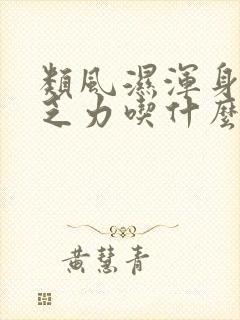 類風濕渾身
乏力喫什麼
黃慧青